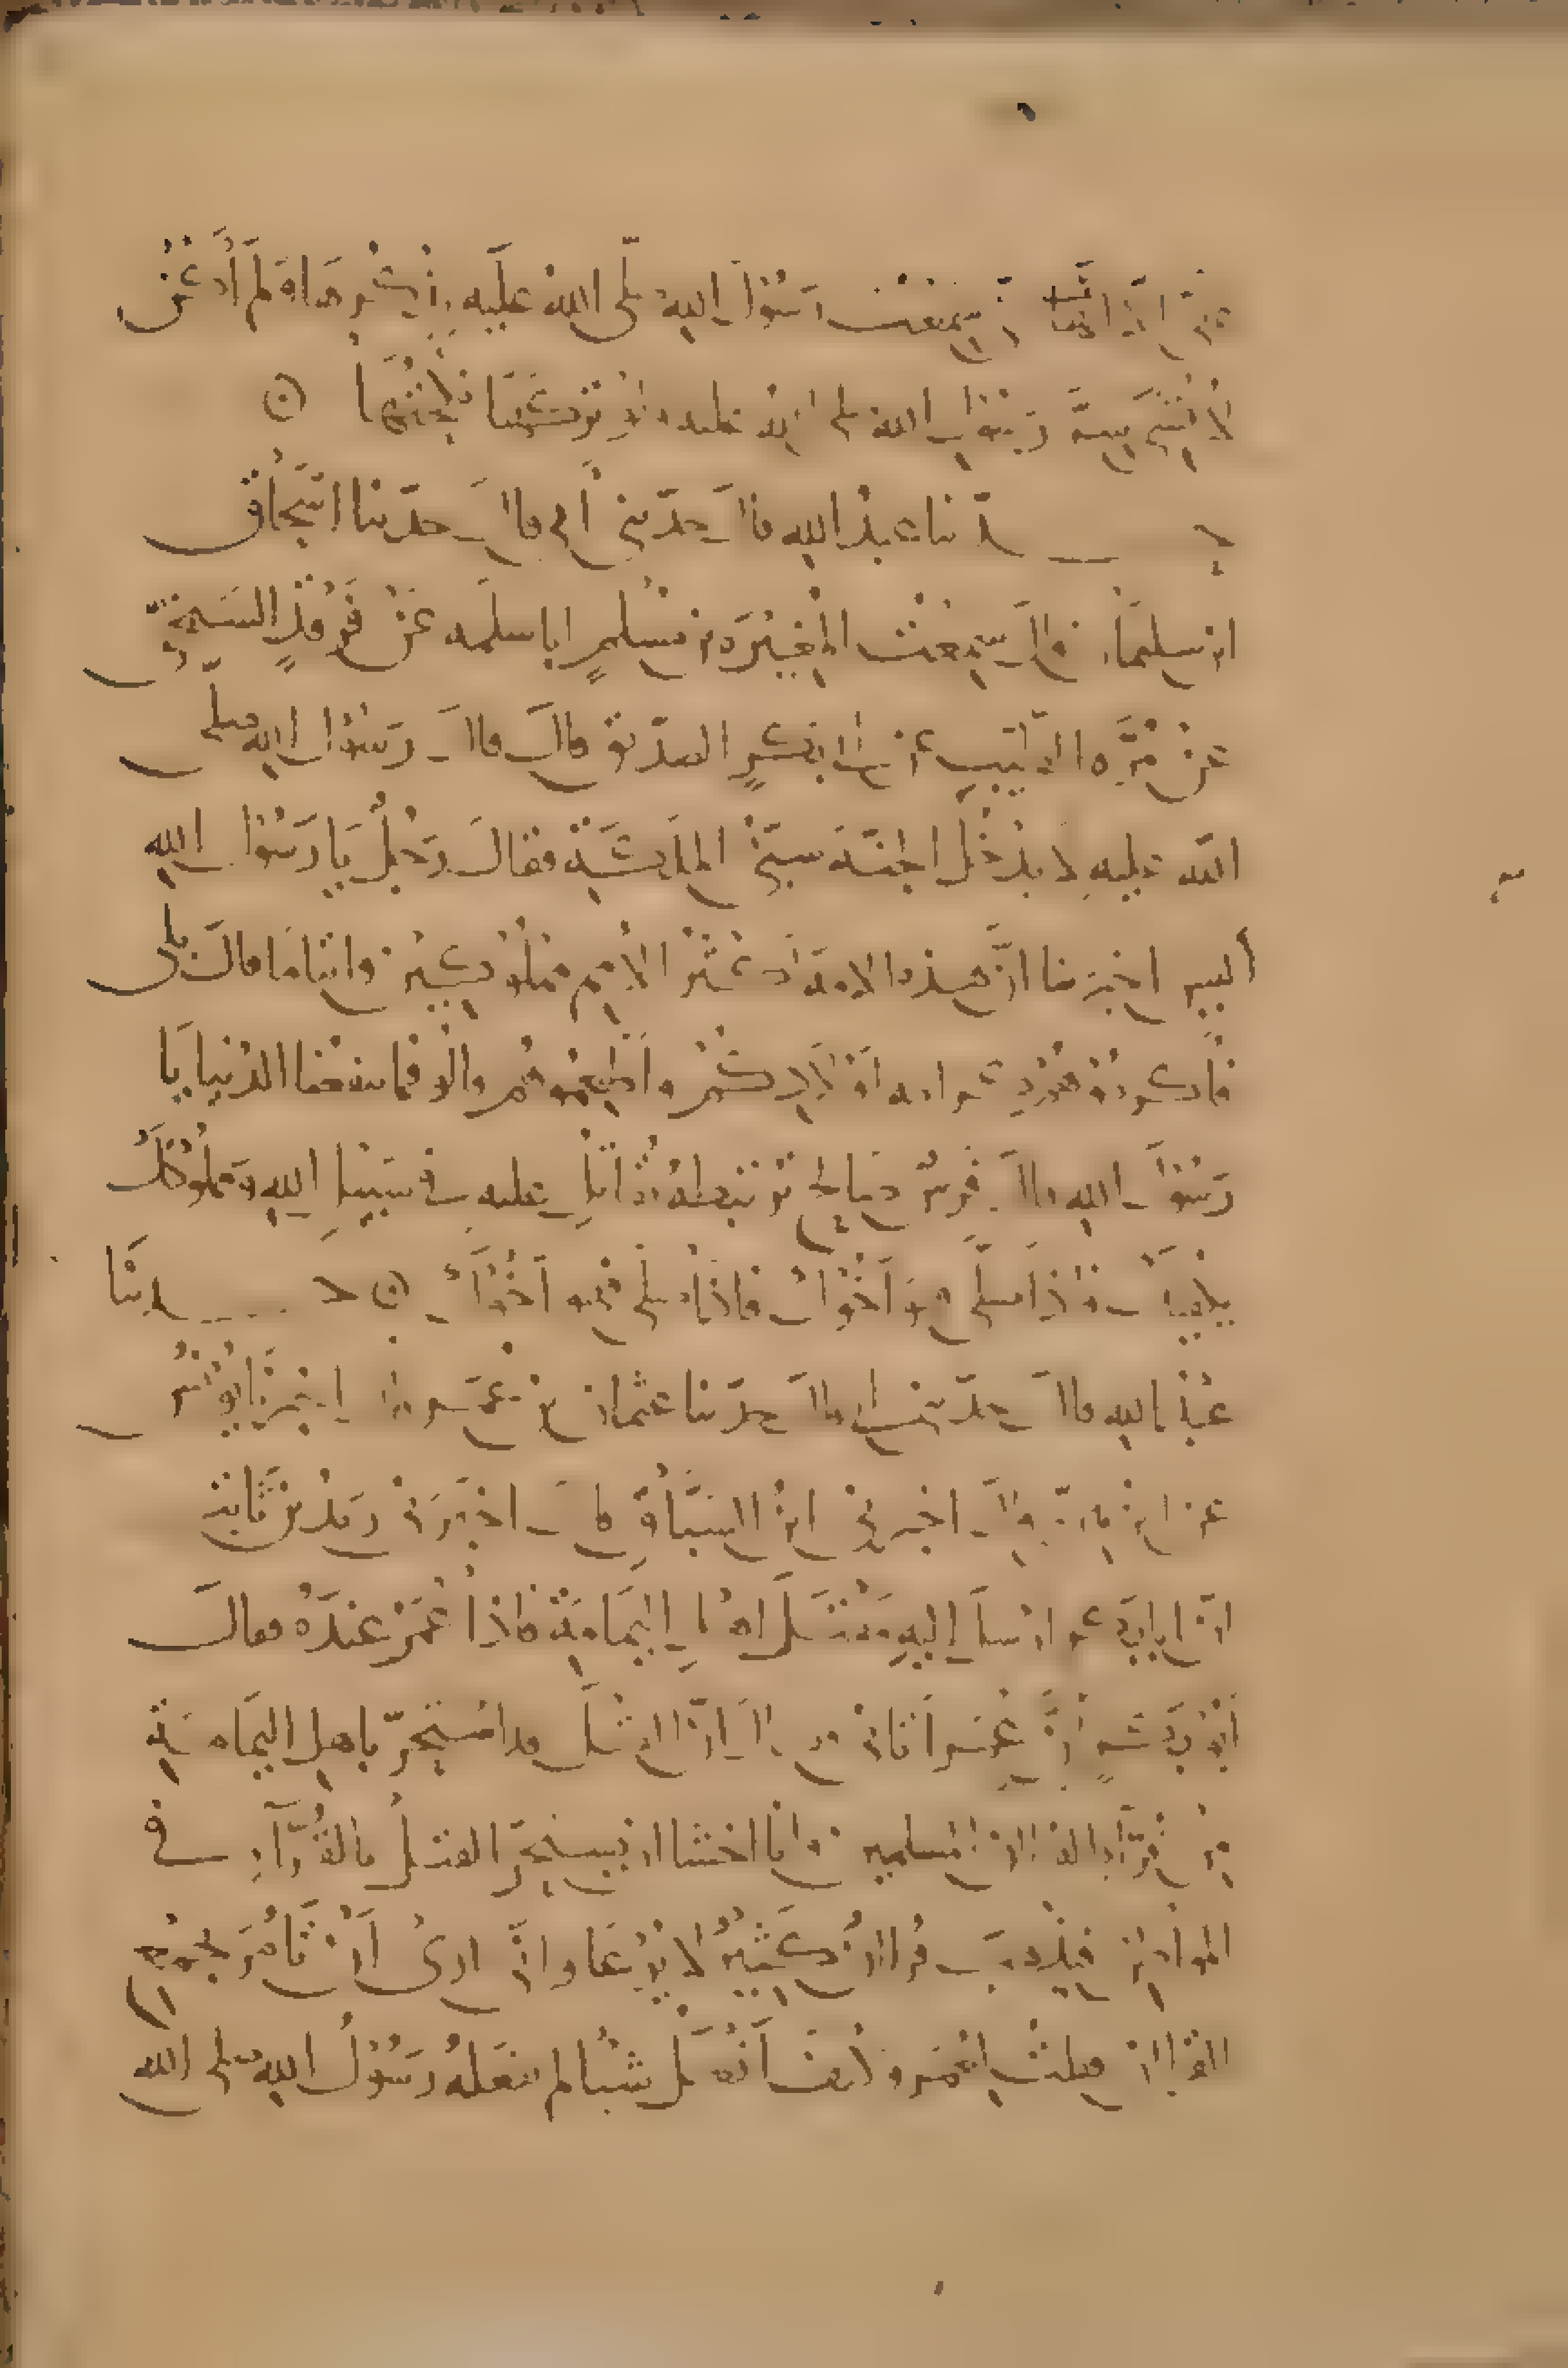 سمعت رسول الله صلى الله عليه يذكرهما ولم أكن
لأفشي سر رسول الله صلى الله عليه ولو تركها نكحتها ن
حدثنا عبد الله قال حدثني أبي قال حدثنا إسحاق
ابن سليمان قال سمعت المغيرة بن مسلم ابا سلمه عن فرقد السبخي
عن مرة الطيب عن أبي بكر الصديق قال قال رسول الله صلى
الله عليه لا يدخل الجنة سيئ الملكة فقال رجل يا رسول الله
أليس اخبرتنا ان هذه الامة أكثر الأمم مملوكين وايتاما قال بلى
فأكرموهم كرامه أولادكم وأطعموهم قالوا فما ينفعنا الدنيا يا
رسول الله قال فرس صالح ترتبطه تقاتل عليه في سبيل الله ومملوكك
يكفيك فإذا صلى فهو أخوك فإذا صلى فهو أخوك ن حدثنا
عبد الله قال حدثني أبي قال حدثنا عثمان بن عمر قال اخبرنا يونس
عن الزهري قال اخبرني ابن السباق قال اخبرني زيد بن ثابت
ان ابا بكر ارسل إليه مقتل اهل اليمامة فإذا عمر عنده فقال
أبو بكر إن عمر أتاني فقال إن القتل قد استحر باهل اليمامة
من قراء القران من المسلمين وانا اخشا ان يستحر القتل بالقراء في
المواطن فيذهب قران كثير لا يوعا واني ارى أن تأمر بجمع
القران فقلت لعمر وكيف أفعل شيئا لم يفعله رسول الله صلى الله